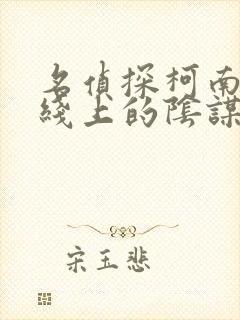 名偵探柯南
綫上的陰謀
宋玉悲